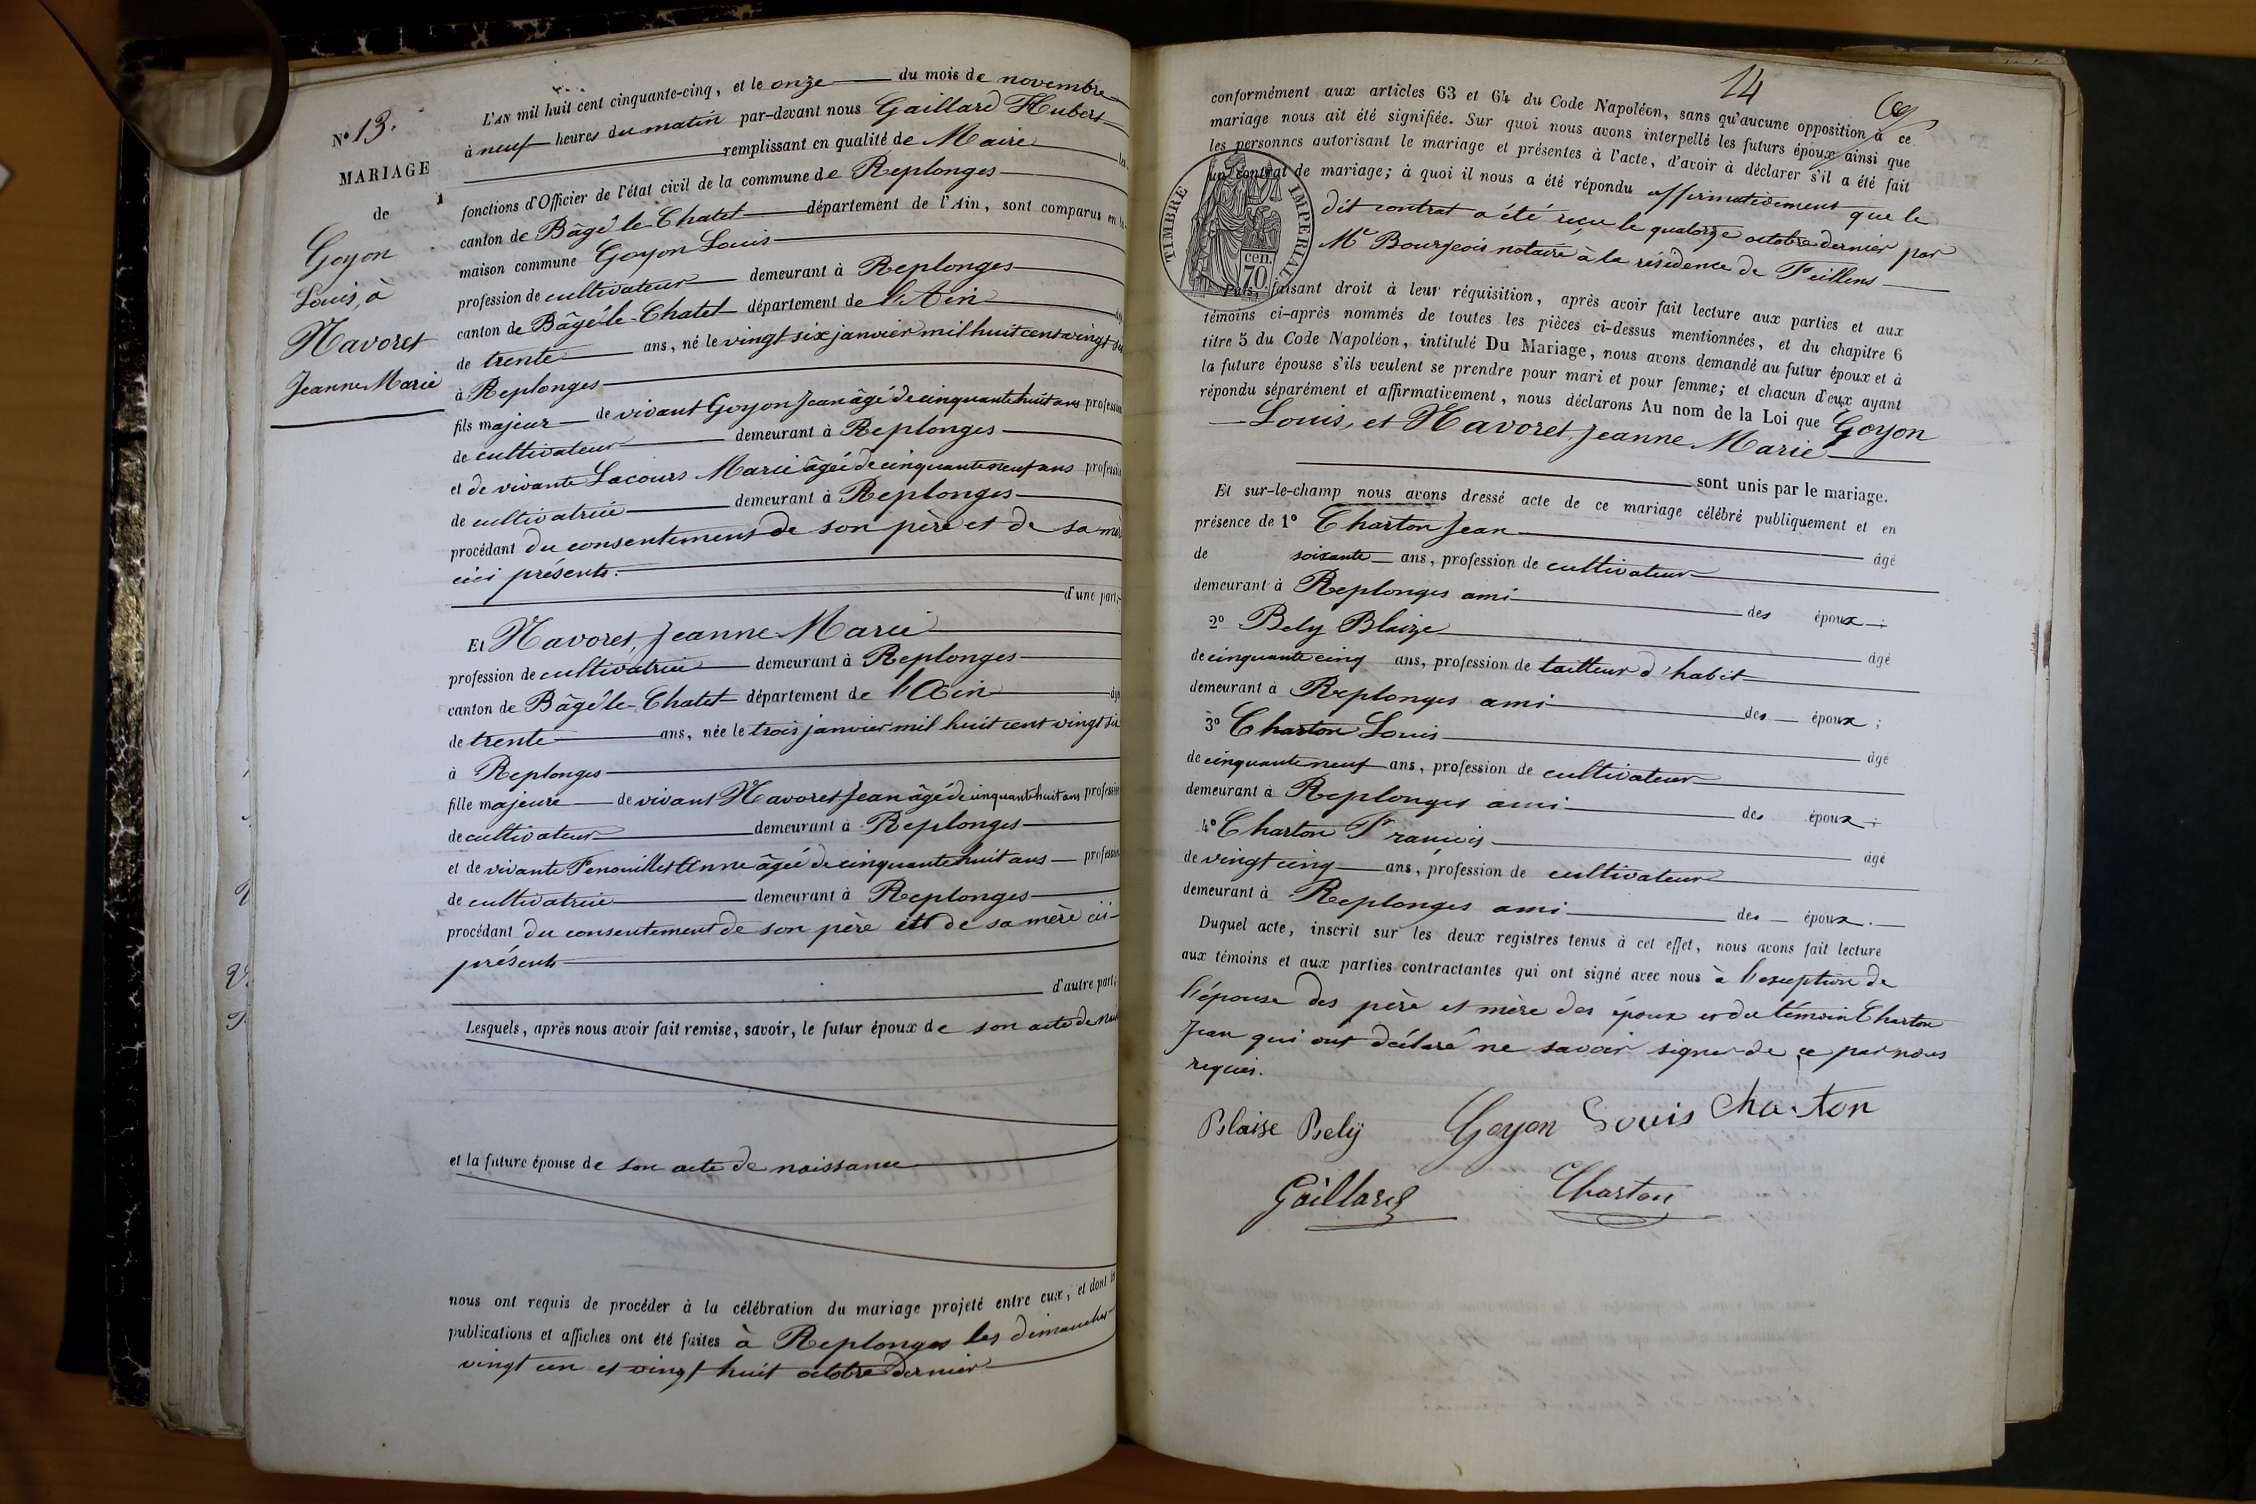 N° 13.
MARIAGE
de
Goyon
Louis, à
Navoret
Jeanne Marie
L'AN mil huit cent cinquante-cinq, et le onze du mois de novembre
à neuf heures du matin par-devant nous Gaillard Hubert
remplissant en qualité de Maire les
fonctions d'Officier de l'état civil de la commune de Replonges
canton de Bâgé-le-Chatel département de l'Ain, sont comparus en la
maison commune Goyon Louis
profession de cultivateur demeurant à Replonges
canton de Bâgé-le-Chatel département de l'Ain âgé
de trente ans, né le vingt six janvier mil huit cent vingt six
à Replonges
fils majeur de vivant Goyon Jean âgé de cinquante huit ans profession
de cultivateur demeurant à Replonges
et de vivante Lacours Marie âgée de cinquante neuf ans profession
de cultivatrice demeurant à Replonges
procédant du consentement de son père et de sa mère
ici présents.
d'une part;
Et Navoret, Jeanne Marie
profession de cultivatrice demeurant à Replonges
canton de Bâgé-le-Chatel département de l'Ain âgée
de trente ans, née le trois janvier mil huit cent vingt six
à Replonges
fille majeure de vivant Navoret Jean âgé de cinquante huit ans profession
de cultivateur demeurant à Replonges
et de vivante Fenouillet Anne âgée de cinquante huit ans profession
de cultivatrice demeurant à Replonges
procédant du consentement de son père et de sa mère ici
présents
d'autre part;
Lesquels, après nous avoir fait remise, savoir, le futur époux de son acte de
et la future épouse de son acte de naissance
nous ont requis de procéder à la célébration du mariage projeté entre eux, et dont les
publications et affiches ont été faites à Replonges les dimanches
vingt un et vingt huit octobre dernier
14
conformément aux articles 63 et 64 du Code Napoléon, sans qu'aucune opposition à ce
mariage nous ait été signifiée. Sur quoi nous avons interpellé les futurs époux ainsi que
les personnes autorisant le mariage et présentes à l'acte, d'avoir à déclarer s'il a été fait
un contrat de mariage; à quoi il nous a été répondu affirmativement que le
dit contrat a été reçu le quatorze octobre dernier par
Me Bourgeois notaire à la résidence de Feillens
TIMBRE IMPÉRIAL
70 cen.
Puis, faisant droit à leur réquisition, après avoir fait lecture aux parties et aux
témoins ci-après nommés de toutes les pièces ci-dessus mentionnées, et du chapitre 6
titre 5 du Code Napoléon, intitulé Du Mariage, nous avons demandé au futur époux et à
la future épouse s'ils veulent se prendre pour mari et pour femme; et chacun d'eux ayant
répondu séparément et affirmativement, nous déclarons Au nom de la Loi que Goyon
Louis, et Navoret, Jeanne Marie
sont unis par le mariage.
Et sur-le-champ nous avons dressé acte de ce mariage célébré publiquement et en
présence de 1° Charton Jean âgé
de soixante ans, profession de cultivateur
demeurant à Replonges ami des époux;
2° Bely Blaize âgé
de cinquante cinq ans, profession de tailleur d'habit
demeurant à Replonges ami des époux;
3° Charton Louis âgé
de cinquante neuf ans, profession de cultivateur
demeurant à Replonges ami des époux;
4° Charton François âgé
de vingt cinq ans, profession de cultivateur
demeurant à Replonges ami des époux.
Duquel acte, inscrit sur les deux registres tenus à cet effet, nous avons fait lecture
aux témoins et aux parties contractantes qui ont signé avec nous à l'exception de
l'épouse des père et mère des époux et du témoin Charton
Jean qui ont déclaré ne savoir signer de ce par nous
requis.
Blaise Bely Goyon Louis Charton
Gaillard Charton